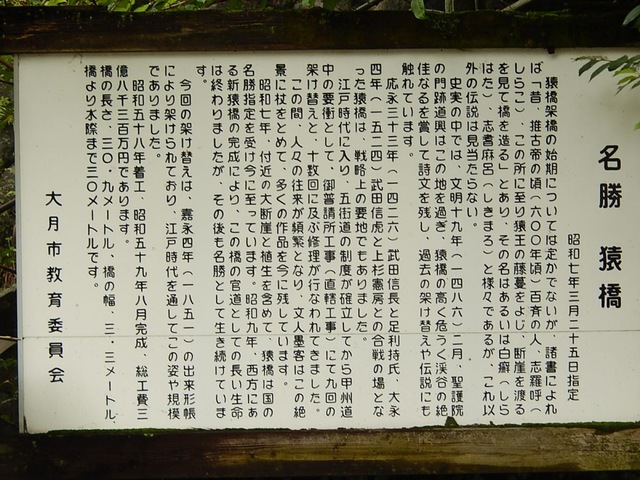 名勝 猿橋
昭和七年三月二十五日指定
猿橋架橋の始期については定かでないが、諸書によれ
ば「昔、推古帝の頃（六〇〇年頃）百済の人、志羅呼（
しらこ）、この所に至り猿王の藤蔓をよじ、断崖を渡る
を見て橋を造る」とあり、その名はあるいは白癬（しら
はた）、志耆麻呂（しきまろ）と様々であるが、これ以
外の伝説は見当たらない。
史実の中では、文明十九年（一四八六）二月、聖護院
の門跡道興はこの地を過ぎ、猿橋の高く危うく渓谷の絶
佳なるを賞して詩文を残し、過去の架け替えや伝説にも
触れています。
応永三十三年（一四二六）武田信長と足利持氏、大永
四年（一五二四）武田信虎と上杉憲房との合戦の場とな
った猿橋は、戦略上の要地でもありました。
江戸時代に入り、五街道の制度が確立してから甲州道
中の要衝として、御普請所工事（直轄工事）にて九回の
架け替えと、十数回に及ぶ修理が行なわれてきました。
この間、人々の往来が頻繁となり、文人墨客はこの絶
景に杖をとめて、多くの作品を今に残しています。
昭和七年、付近の大断崖と植生を含めて、猿橋は国の
名勝指定を受け今に至っています。昭和九年、西方にあ
る新猿橋の完成により、この橋の官道としての長い生命
は終わりましたが、その後も名勝として生き続けていま
す。
今回の架け替えは、嘉永四年（一八五一）の出来形帳
により架けられており、江戸時代を通してこの姿や規模
でありました。
昭和五十八年着工、昭和五十九年八月完成、総工費三
億八千三百万円であります。
橋の長さ、三〇・九メートル、橋の幅、三・三メートル、
橋より水際まで三〇メートルです。
大月市教育委員会